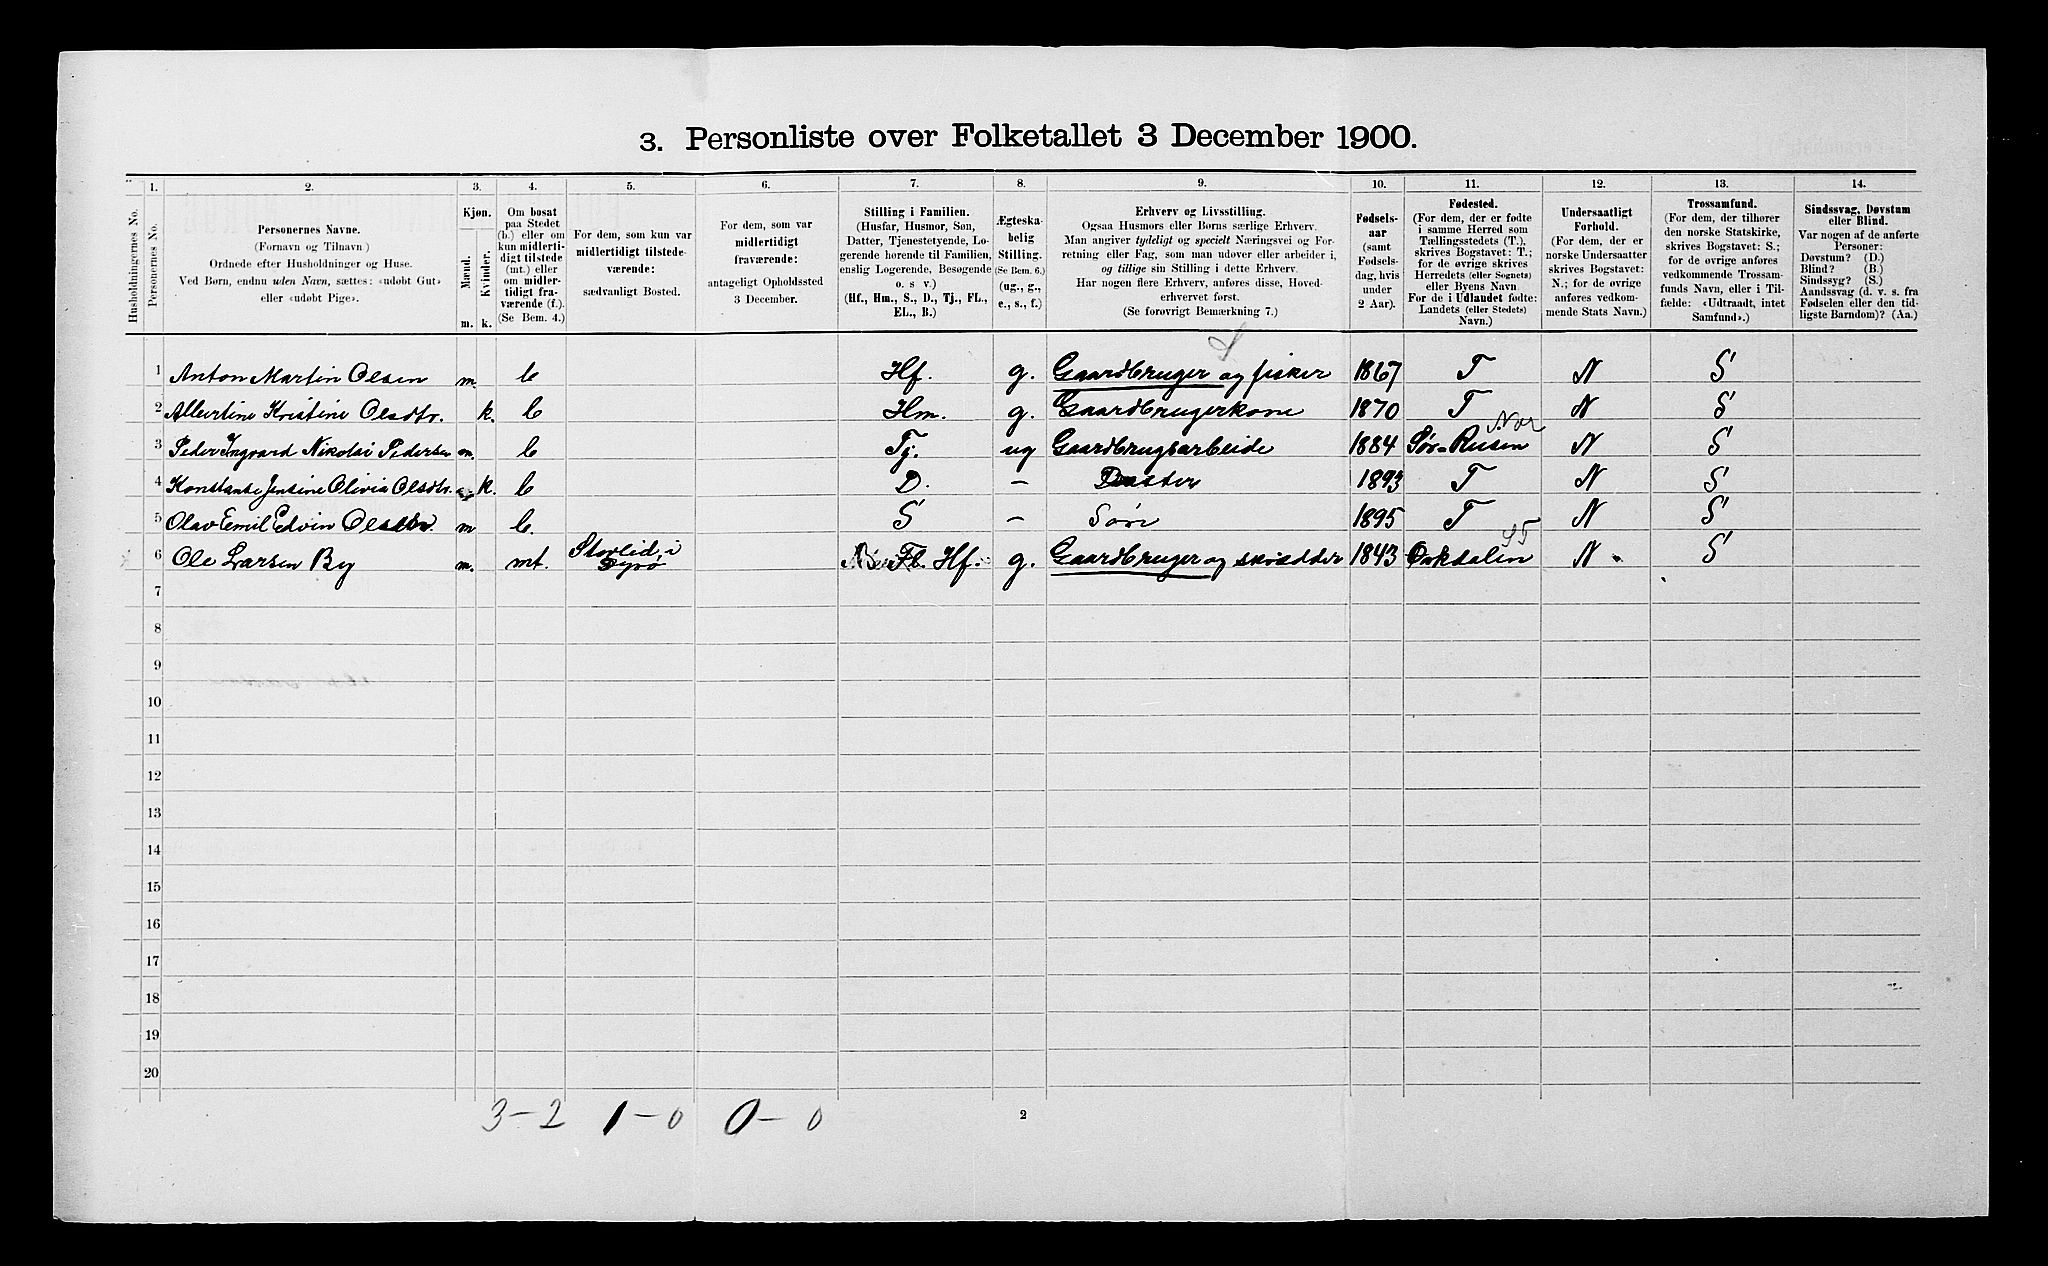 3. Personliste over Folketallet 3 December 1900.
Husholdningernes No.
1.
Personernes No.
2.
Personernes Navne.
(Fornavn og Tilnavn)
Ordnede efter Husholdninger og Huse.
Ved Børn, endnu uden Navn, sættes: «udøbt Gut»
eller «udøbt Pige».
3.
Kjøn.
Mænd.
Kvinder.
m. k.
4.
Om bosat
paa Stedet
(b.) eller om
kun midlerti-
digt tilstede
(mt.) eller
om midler-
tidigt fra-
værende (f.).
(Se Bem. 4.)
5.
For dem, som kun var
midlertidigt tilstede-
værende:
sædvanligt Bosted.
6.
For dem, som var
midlertidigt
fraværende:
antageligt Opholdssted
3 December.
7.
Stilling i Familien.
(Husfar, Husmor, Søn,
Datter, Tjenestetyende, Lo-
gerende hørende til Familien,
enslig Logerende, Besøgende
o. s v.)
(Hf., Hm., S., D., Tj., FL.,
EL., B.)
8.
Ægteska-
belig
Stilling.
(Se Bem. 6.)
(ug., g.,
e., s., f.)
9.
Erhverv og Livsstilling.
Ogsaa Husmors eller Børns særlige Erhverv.
Man angiver tydeligt og specielt Næringsvei og For-
retning eller Fag, som man udøver eller arbeider i,
og tillige sin Stilling i dette Erhverv.
Har nogen flere Erhverv, anføres disse, Hoved-
erhvervet først.
(Se forøvrigt Bemærkning 7.)
10.
Fødsels-
aar
(samt
Fødsels-
dag, hvis
under
2 Aar).
11.
Fødested.
(For dem, der er fødte
i samme Herred som
Tællingsstedets (T.),
skrives Bogstavet: T.;
for de øvrige skrives
Herredets (eller Sognets)
eller Byens Navn
For de i Udlandet fødte:
Landets (eller Stedets)
Navn.)
12.
Undersaatligt
Forhold.
(For dem, der er
norske Undersaatter
skrives Bogstavet:
N.; for de øvrige
anføres vedkom-
mende Stats Navn.)
13.
Trossamfund.
(For dem, der tilhører
den norske Statskirke,
skrives Bogstavet: S.;
for de øvrige anføres
vedkommende Trossam-
funds Navn, eller i Til-
fælde: «Udtraadt, intet
Samfund».)
14.
Sindssvag, Døvstum
eller Blind.
Var nogen af de anførte
Personer:
Døvstum? (D.)
Blind? (B.)
Sindssyg? (S.)
Aandssvag (d. v. s. fra
Fødselen eller den tid-
ligste Barndom)? (Aa.)
1 Anton Martin Olsen m. b Hf. g. Gaardbruger og fisker 1867 T N S
2 Albertine Kristine Olsdtr. k. b Hm. g. Gaardbrugerkone 1870 T N S
3 Peder Ingvard Nikolai Pedersen m. b Tj. ug Gaardbrugsarbeide 1884 Sør-Reisen N S
4 Konstanse Jensine Olivia Olsdtr. k. b D. – Datter 1893 T N S
5 Olav Emil Edvin Olsen m b. S – Søn 1895 T N S
6 Ole Larsen By m. mt. Storlid, i Hf. g. Gaardbruger og skrædder 1843 Orkdalen N S
7
8
9
10
11
12
13
14
15
16
17
18
19
20
3-2 1-0 0-0
2